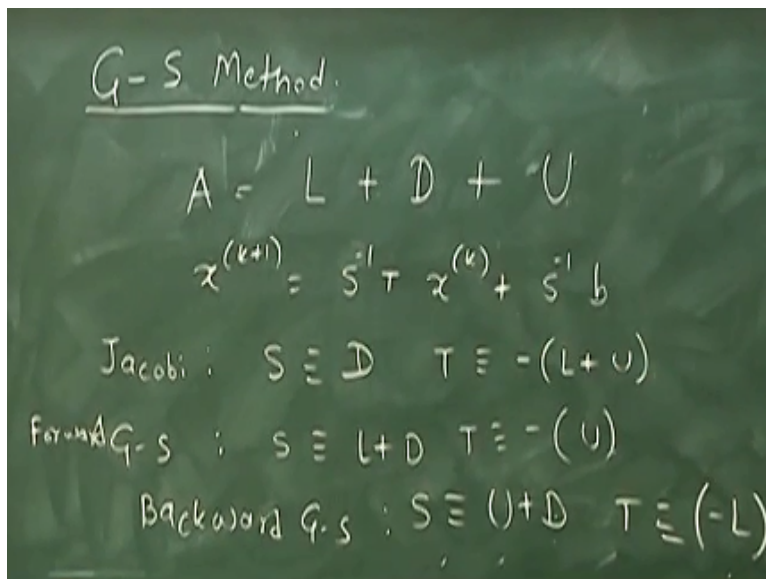 G-S Method.
A = L + D + U
x^(k+1) = S^-1 T x^(k) + S^-1 b
Jacobi : S ≡ D T ≡ -(L+U)
Forward G-S : S ≡ L+D T ≡ -(U)
Backward G-S : S ≡ U+D T ≡ (-L)